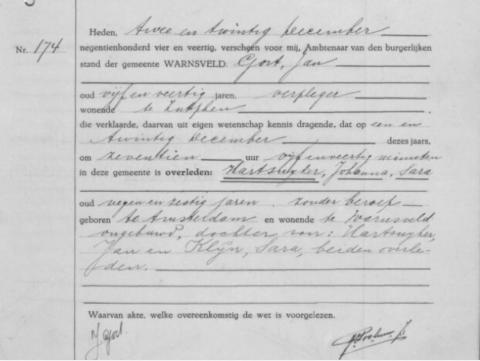 Heden, twee en twintig December
Nr. 174
negentienhonderd vier en veertig, verscheen voor mij, Ambtenaar van den burgerlijken
stand der gemeente WARNSVELD. Gort, Jan
oud vijf en veertig jaren, verpleger
wonende te Zutphen
die verklaarde, daarvan uit eigen wetenschap kennis dragende, dat op een en
twintig December dezes jaars,
om zeventien uur vijf en veertig minuten
in deze gemeente is overleden: Hartsuyker, Johanna, Sara
oud negen en zestig jaren. zonder beroep
geboren te Amsterdam en wonende te Warnsveld
ongehuwd, dochter van: Hartsuyker,
Jan en Klijn, Sara, beiden overle-
den.
Waarvan akte, welke overeenkomstig de wet is voorgelezen.
J Gort.